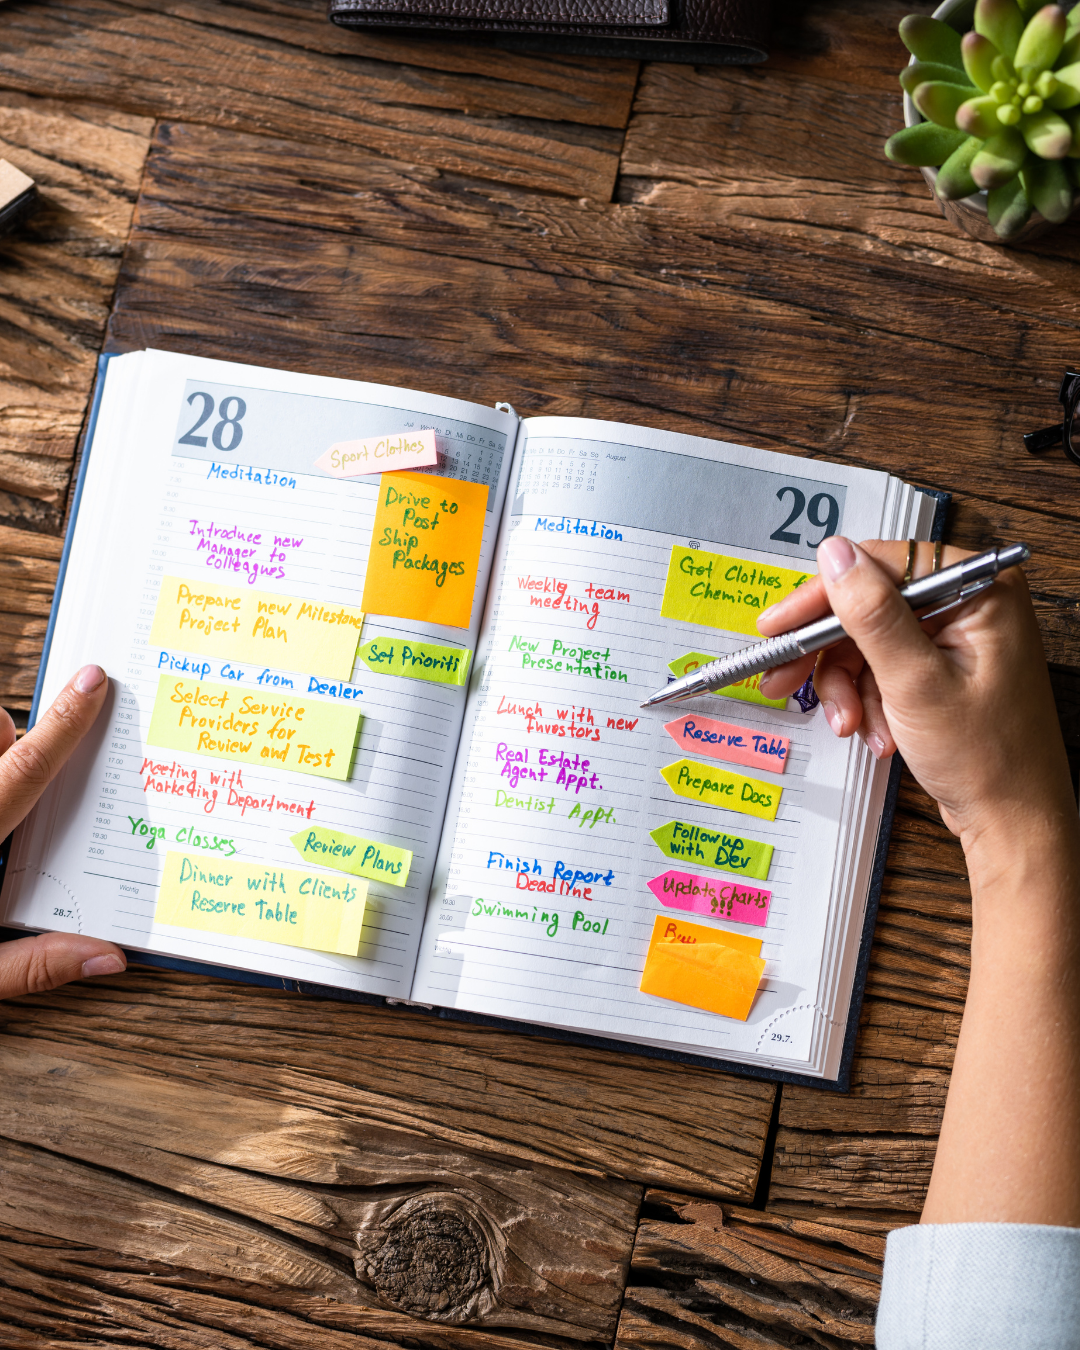 28
Sport Clothes
Meditation
Drive to
Post
Ship
Packages
Introduce new
Manager to
colleagues
Prepare new Milestone
Project Plan
Set Prioriti
Pickup Car from Dealer
Select Service
Providers for
Review and Test
Meeting with
Marketing Department
Yoga Classes
Review Plans
Dinner with Clients
Reserve Table
28.7.
August
29
Meditation
Get Clothes
Chemical
Weekly team
meeting
New Project
Presentation
Lunch with new
Investors
Reserve Table
Real Estate
Agent Appt.
Prepare Docs
Dentist Appt.
Followup
with Dev
Finish Report
Deadline
Update Charts
!!!
Swimming Pool
29.7.